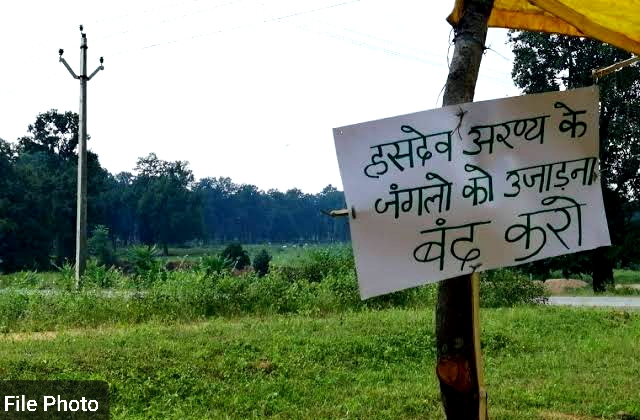 हसदेव अरण्य के
जंगलो को उजाड़ना
बंद करो
File Photo